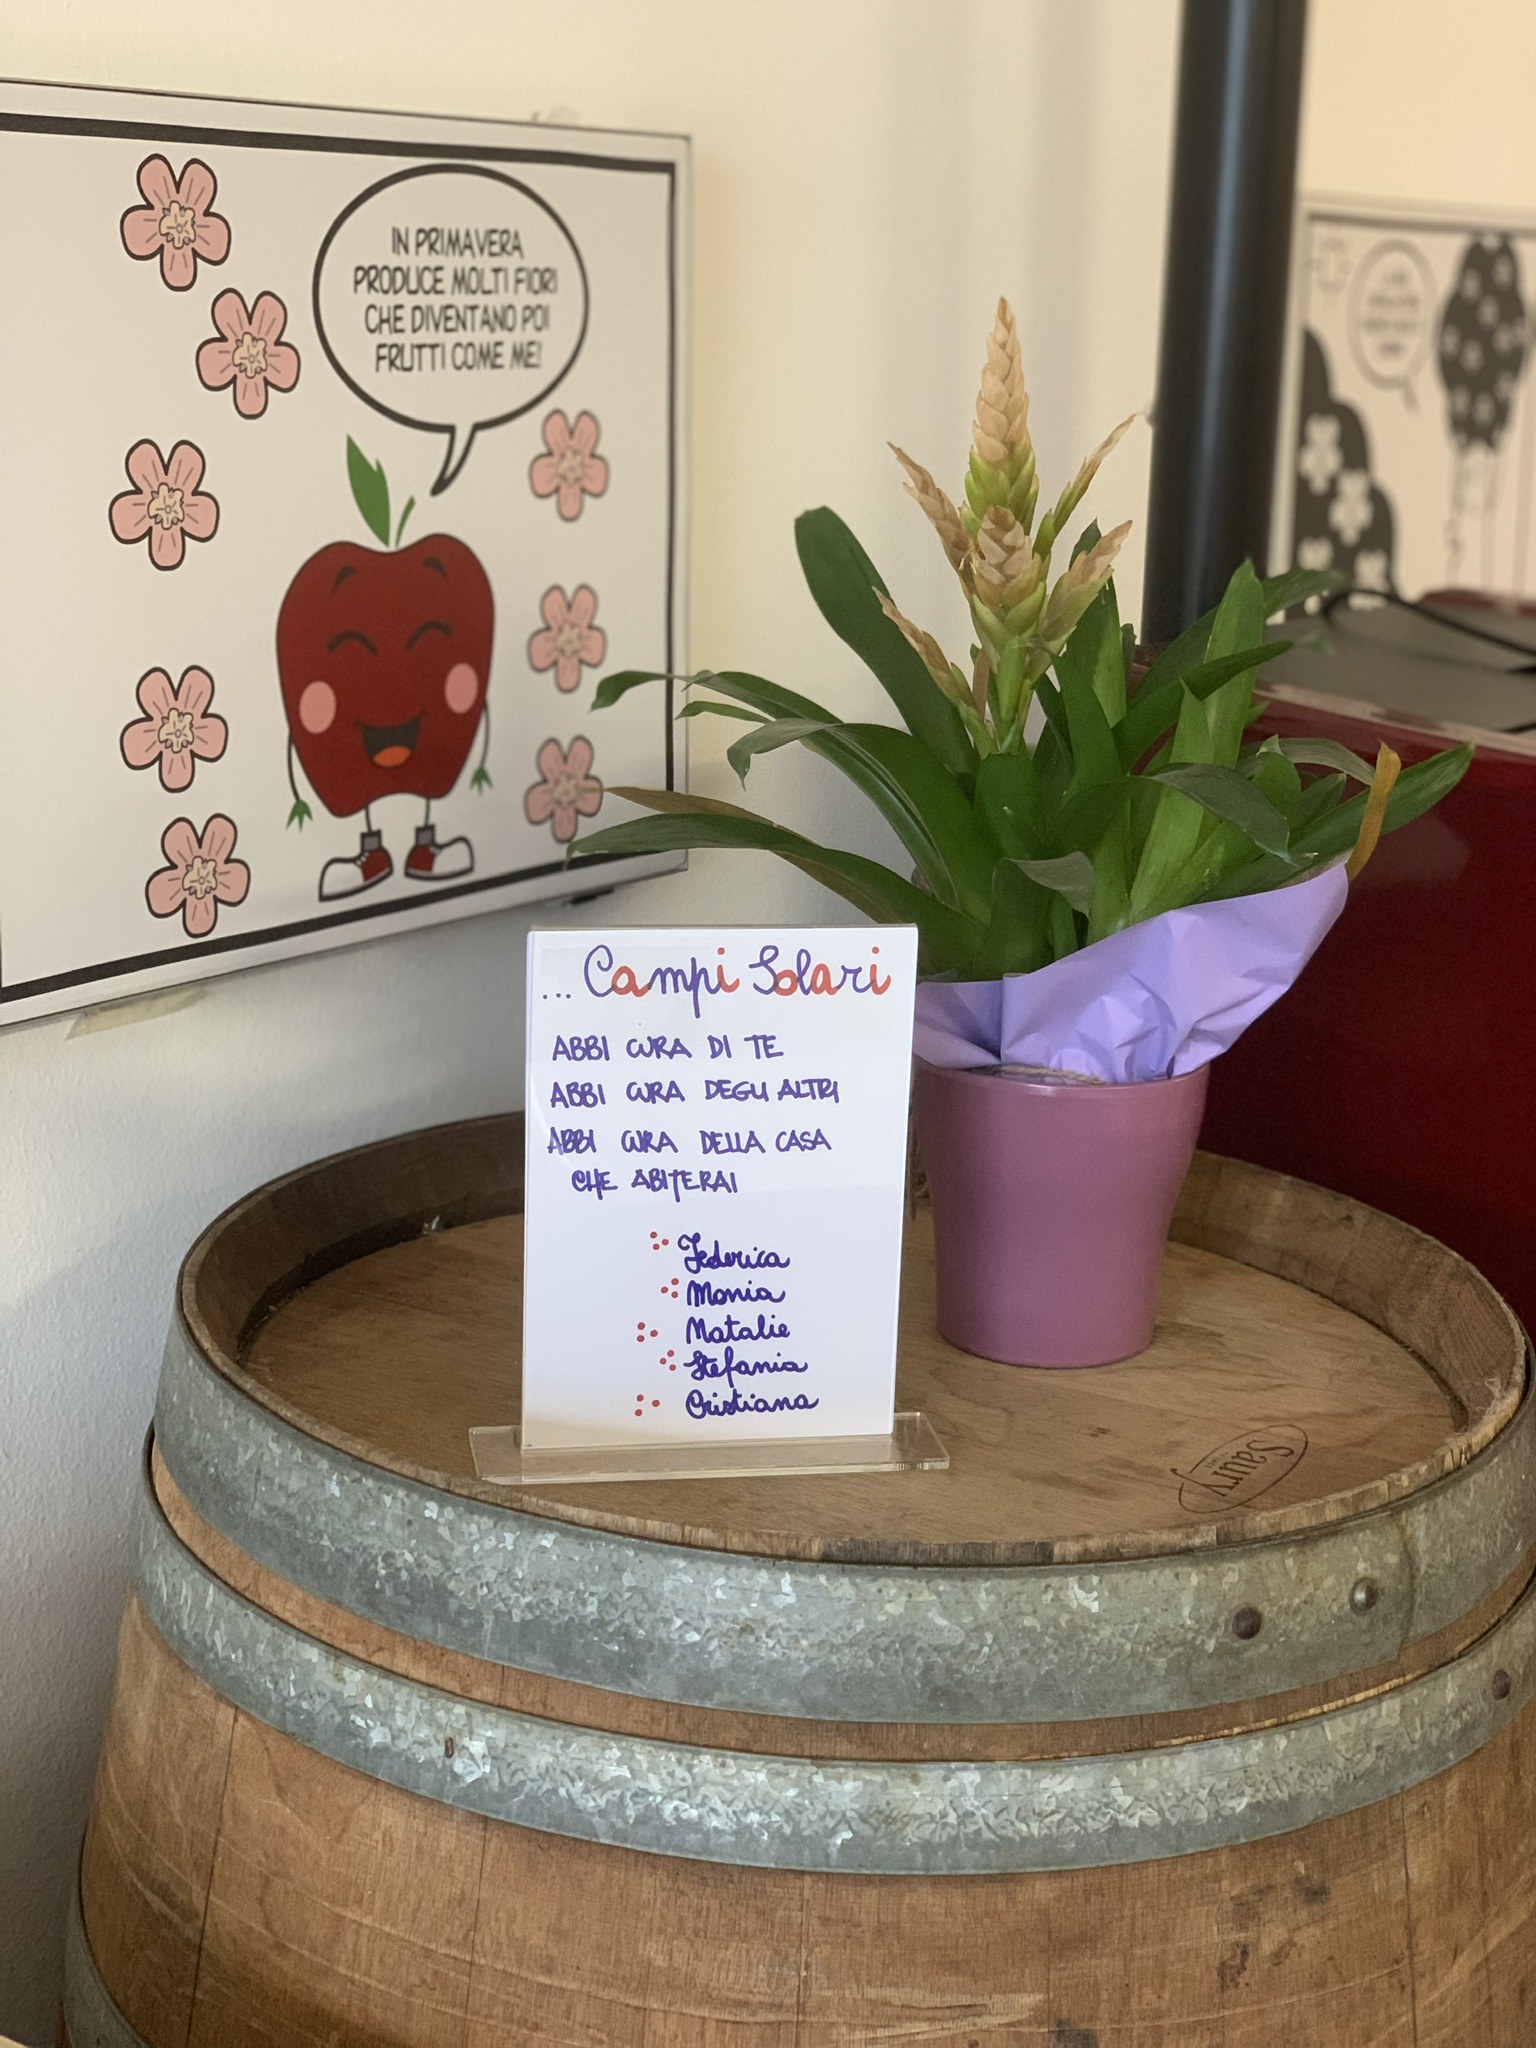 IN PRIMAVERA
PRODUCE MOLTI FIORI
CHE DIVENTANO POI
FRUTTI COME ME!
... Campi Solari
ABBI CURA DI TE
ABBI CURA DEGLI ALTRI
ABBI CURA DELLA CASA
CHE ABITERAI
Federica
Monia
Natalie
Stefania
Cristiana
Saury